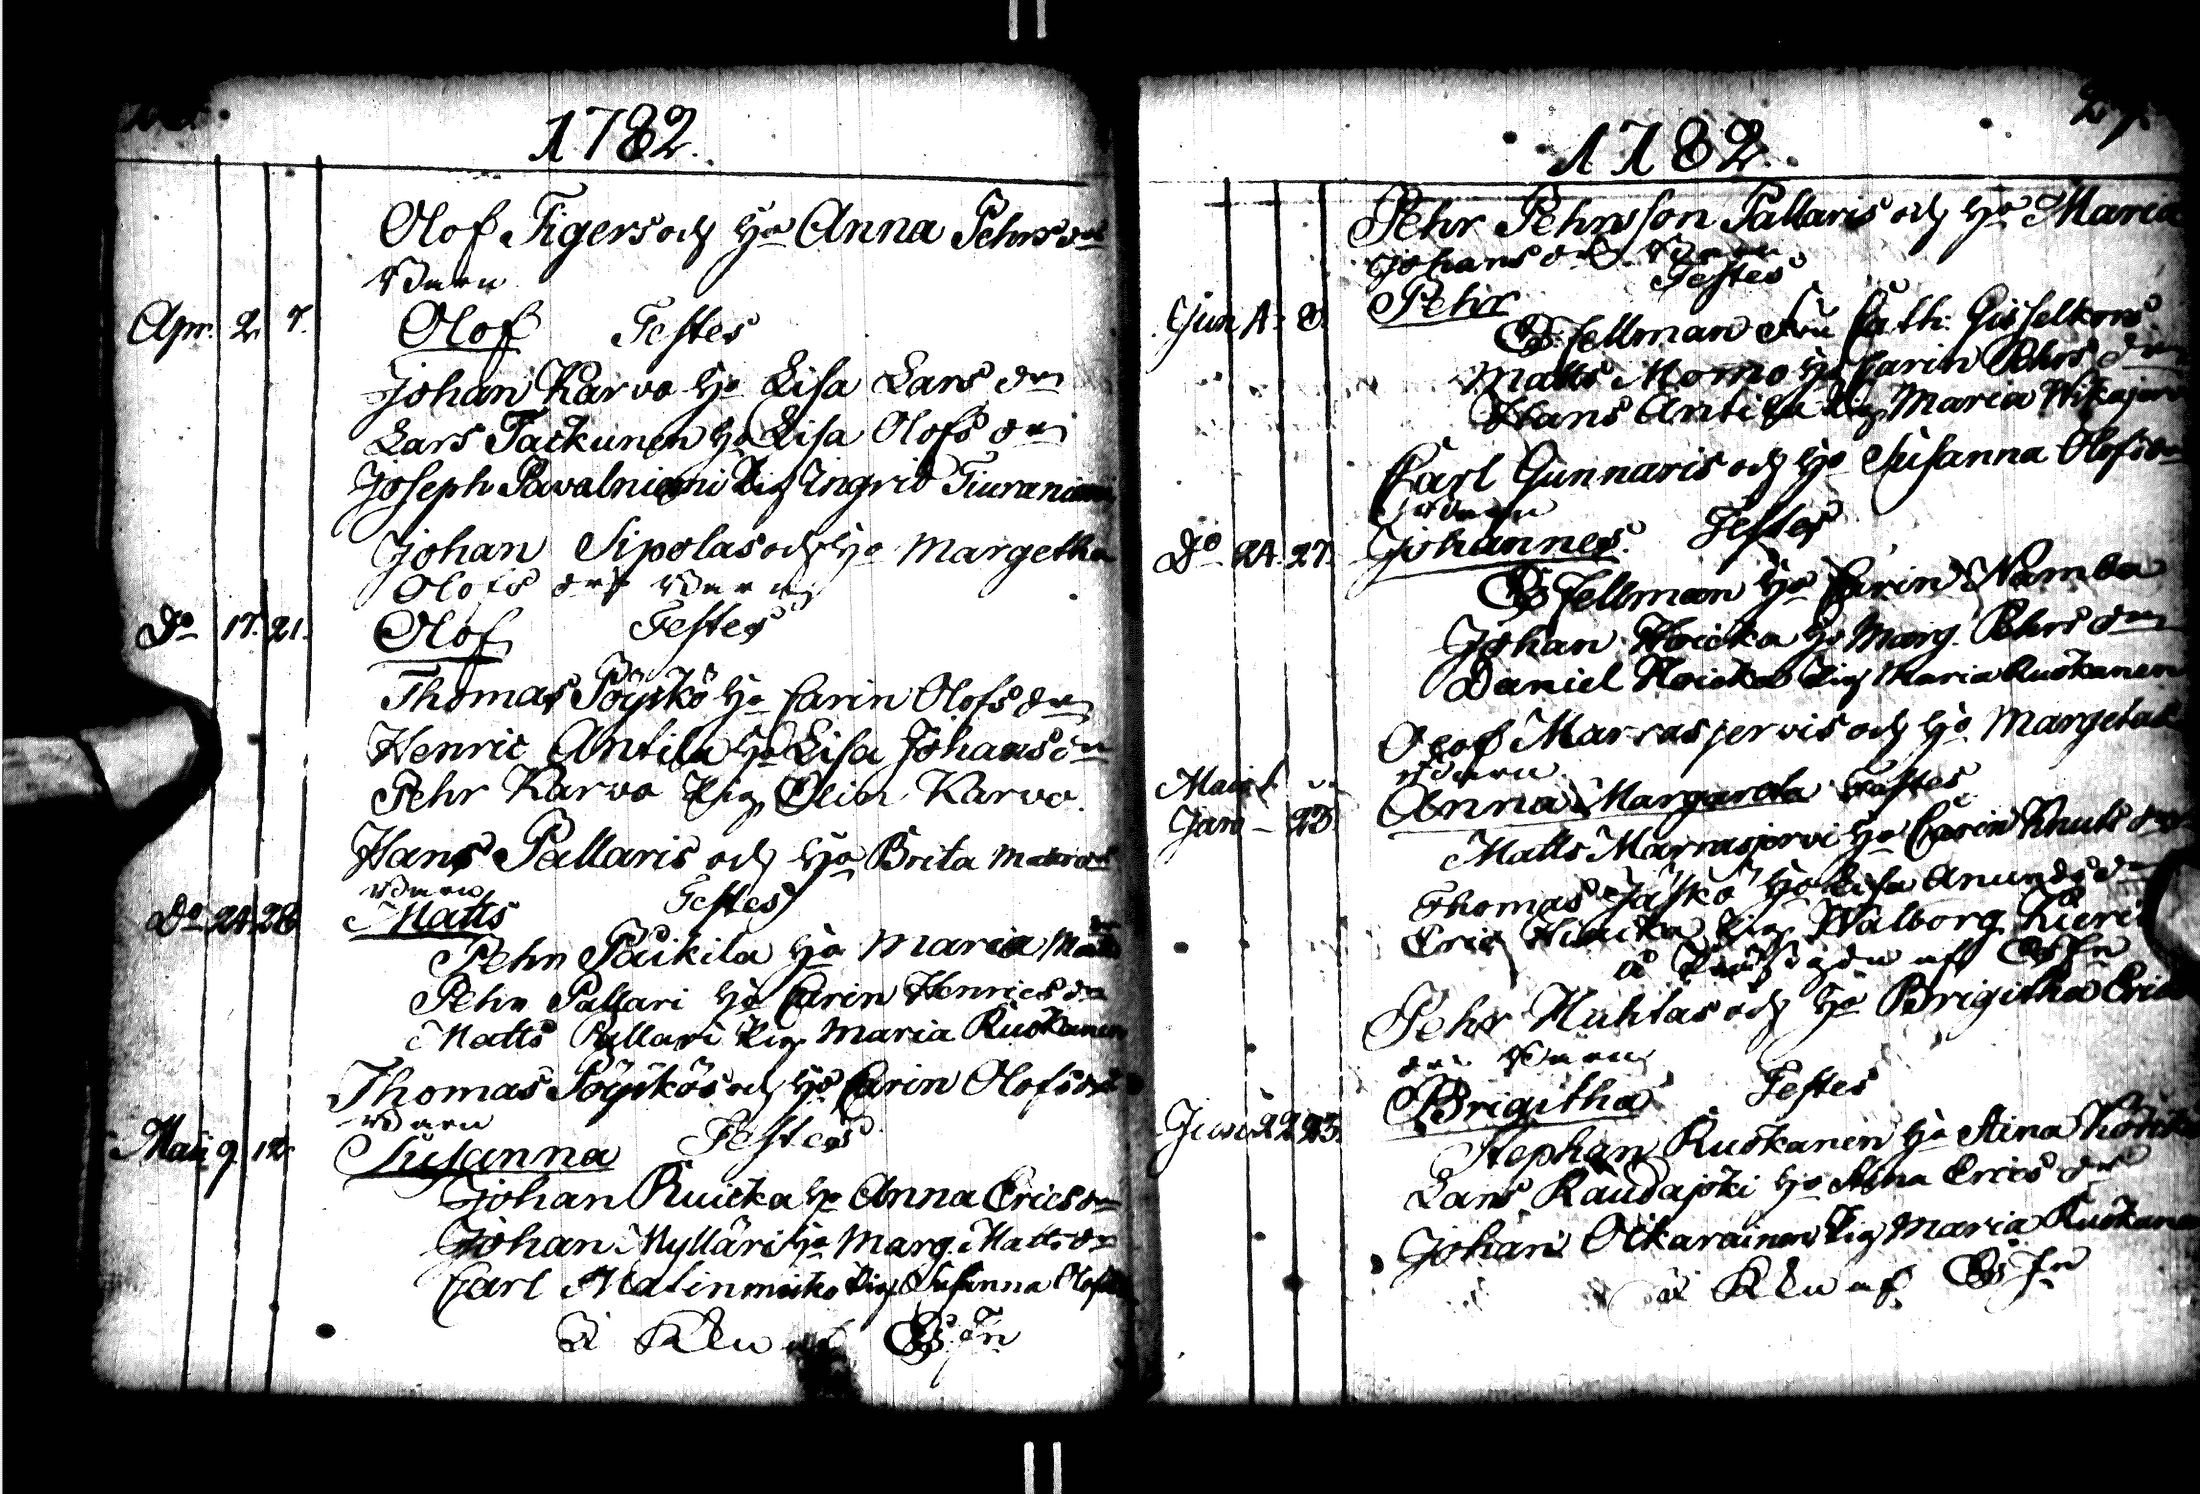 1782.
Olof Tigers och Ho Anna Pehrs dr
Barn
Apr. 2 7. Olof Testes
Johan Karvo Ho Lisa Lars dr
Lars Tackunen Ho Lisa Olofs dr
Joseph Pavalniemi Pig Ingrid Tiuraniemi
Johan Sipolas och Ho Margetha
Olofs dr Barn
Do 17. 21. Olof Testes
Thomas Pöyskö Ho Carin Olofs dr
Henric Antila Ho Lisa Johans dr
Pehr Karvo Pig Elin Karvo.
Hans Pallaris och Ho Brita Matts dr
Barn
Do 24. 28 Matts Testes
Pehr Paikila Ho Maria Matts dr
Pehr Pallari Ho Carin Henrics dr
Matts Pallari Pig Maria Ruokanen
Thomas Pöyskös och Ho Carin Olofs dr
Barn
Maii 9. 12. Susanna Testes
Johan Ruicka Ho Anna Erics dr
Johan Myllari Ho Marg. Matts dr
Carl Matinmicko Pig Susanna Olofs
af Es. Fn
27.
1782.
Pehr Pehrsson Pallaris och Ho Maria
Johans dr Barn
Testes
Jun 1. 8. Pehr
Es. Fellman Fru Cath. Gisselkors
Matts Momo Ho Carin Pehrs dr
Hans Antila Pig Maria
Carl Gunnaris och Ho Susanna Olofs dr
Barn
Do 24. 27. Johannes. Testes
Es Fellman Ho Carin Namba
Johan Hoicka Ho Marg. Pehrs dr
Daniel Hoicka Pig Maria Ruokanen
Olof Marrasjervis och Ho Margeta
Barn
Jan – 23. Anna Margareta Testes
Matts Marrasjervi Ho Carin Knuts dr
Thomas Ho Lisa Anunds dr
Eric Pig Walborg
af Es Fn
Pehr Huhtas och Ho Brigitha Erics
dr Barn
22 23. Brigitha Testes
Stephan Ruokanen Ho Stina
Lars Raudajoki Ho Stina Erics dr
Johan Oikarainen Pig Maria Ruokanen
af Es Fn